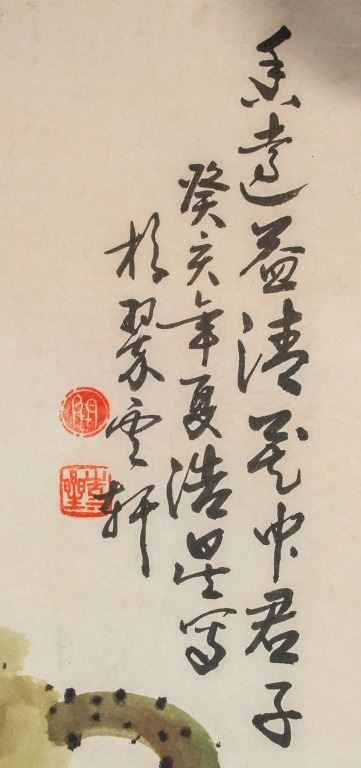 香遠益清花中君子
癸亥年夏浩星寫
於翠雲軒